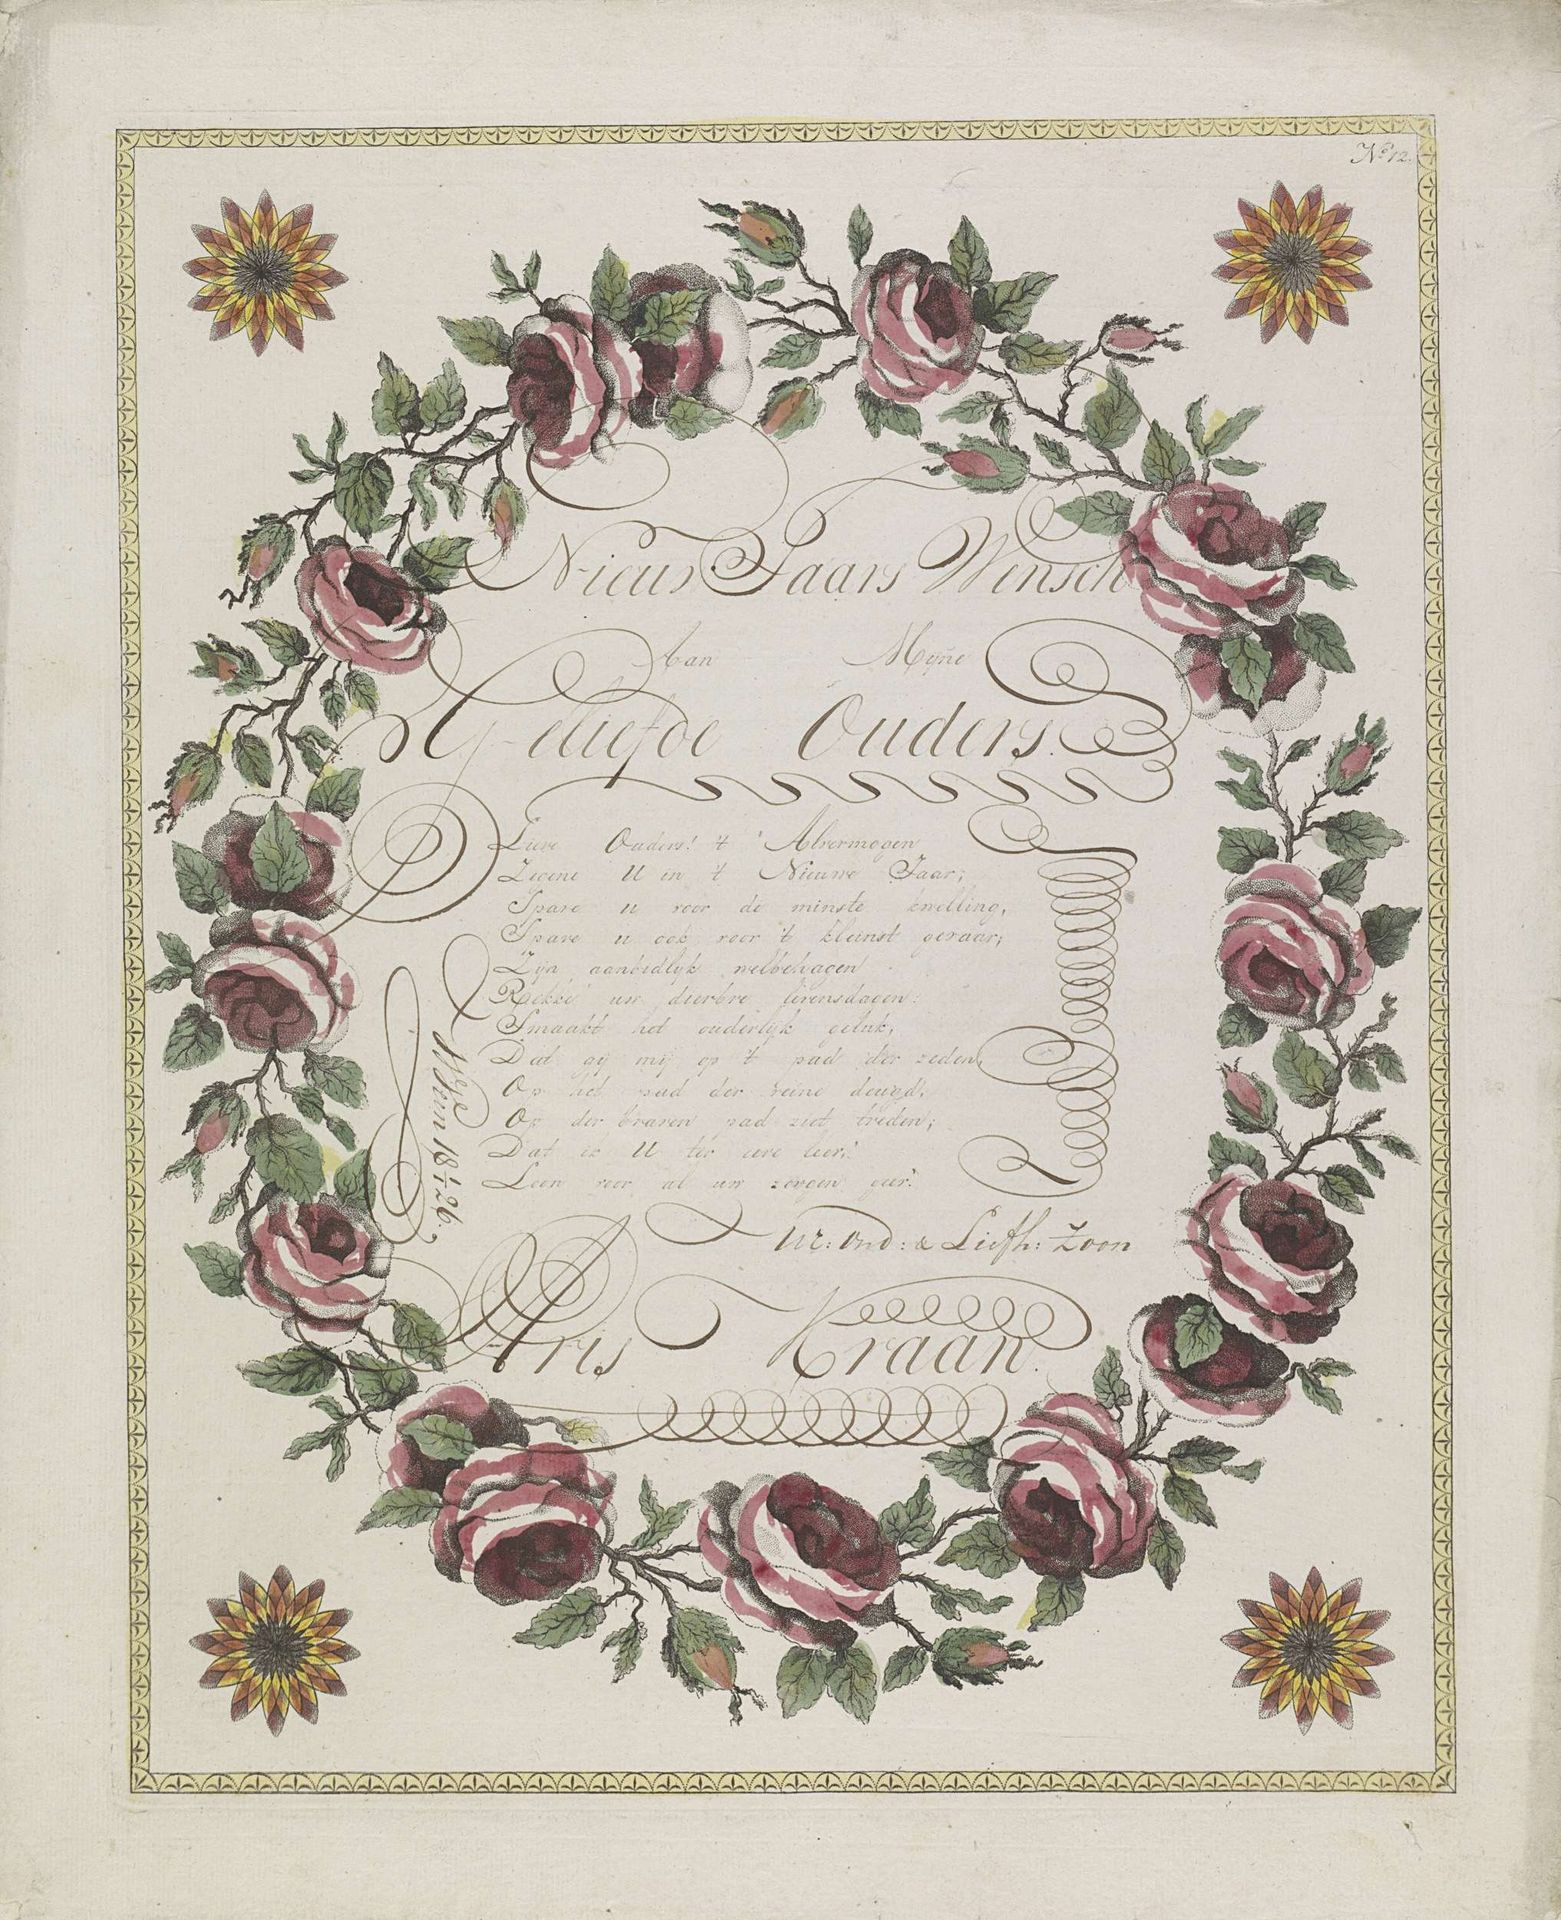 No. 12.
Nieuw Jaars Wensch
Aan Myne
Geliefde Ouders.
Lieve Ouders! 't Alvermogen
Zegene U in 't Nieuwe Jaar;
Spare u voor de minste knelling,
Spare u ook voor 't kleinst gevaar;
Zijn aanbidlijk welbehagen
Rekke uw dierbre levensdagen:
Smaakt het ouderlijk geluk,
Dat gij mij op 't pad der zeden,
Op het pad der reine deugd,
Op der braven pad ziet treden;
Dat ik U ter eere leev,
Loon voor al uw zorgen geev.
18 1/1 26.
Uw: Ond: & Liefh: Zoon
Aris Kraan.